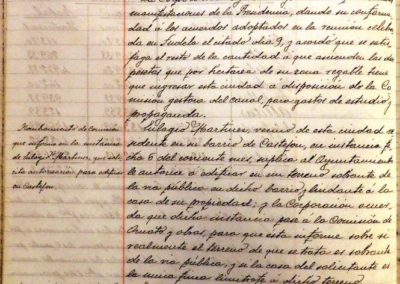 manifestaciones de la Presidencia, dando su conformi-
dad á los acuerdos adoptados en la reunión celebra-
da en Tudela el citado día 9, y acordó que se satis-
faga el resto de la cantidad á que ascienden las dos
pesetas que por hectarea de su zona regable tiene
que ingresar esta ciudad á disposición de la Co-
misión gestora del canal, para gastos de estudio y
propaganda.
Nombramiento de Comisión
que informe en la instancia
de Eulogio Martinez, que soli-
cita autorización para edificar
en Castejon.
Eulogio Martinez, vecino de esta ciudad re-
sidente en su barrio de Castejon, en instancia fe-
cha 6 del corriente mes, suplica al Ayuntamiento
le autorice á edificar en un terreno sobrante de
la via pública en dicho barrio, y lindante á la
casa de su propiedad; y la Corporación acuer-
da que dicha instancia pase á la Comisión de
Ornato y obras, para que esta informe sobre si
realmente el terreno de que se trata es sobrante
de la via pública, y si la casa del solicitante es
la única finca limitrofe á dicho terreno.